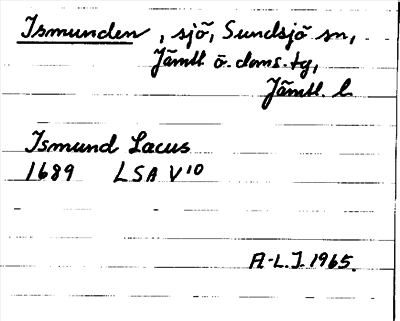 Ismunden, sjö, Sundsjö sn,
Jämtl ö. doms. tg,
Jämtl. l
Ismund Lacus
1689 LSA V¹⁰
A-L.J. 1965.